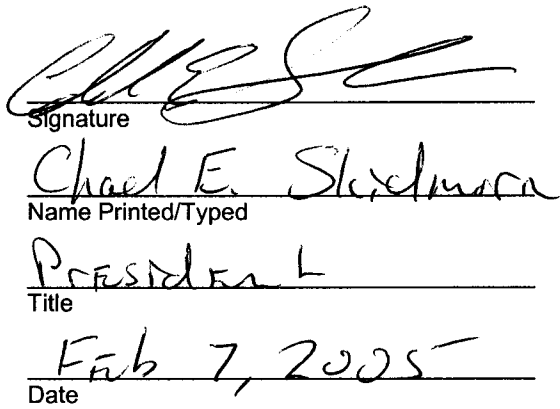 Signature
Chad E. Skidmore
Name Printed/Typed
President
Title
Feb 7, 2005
Date